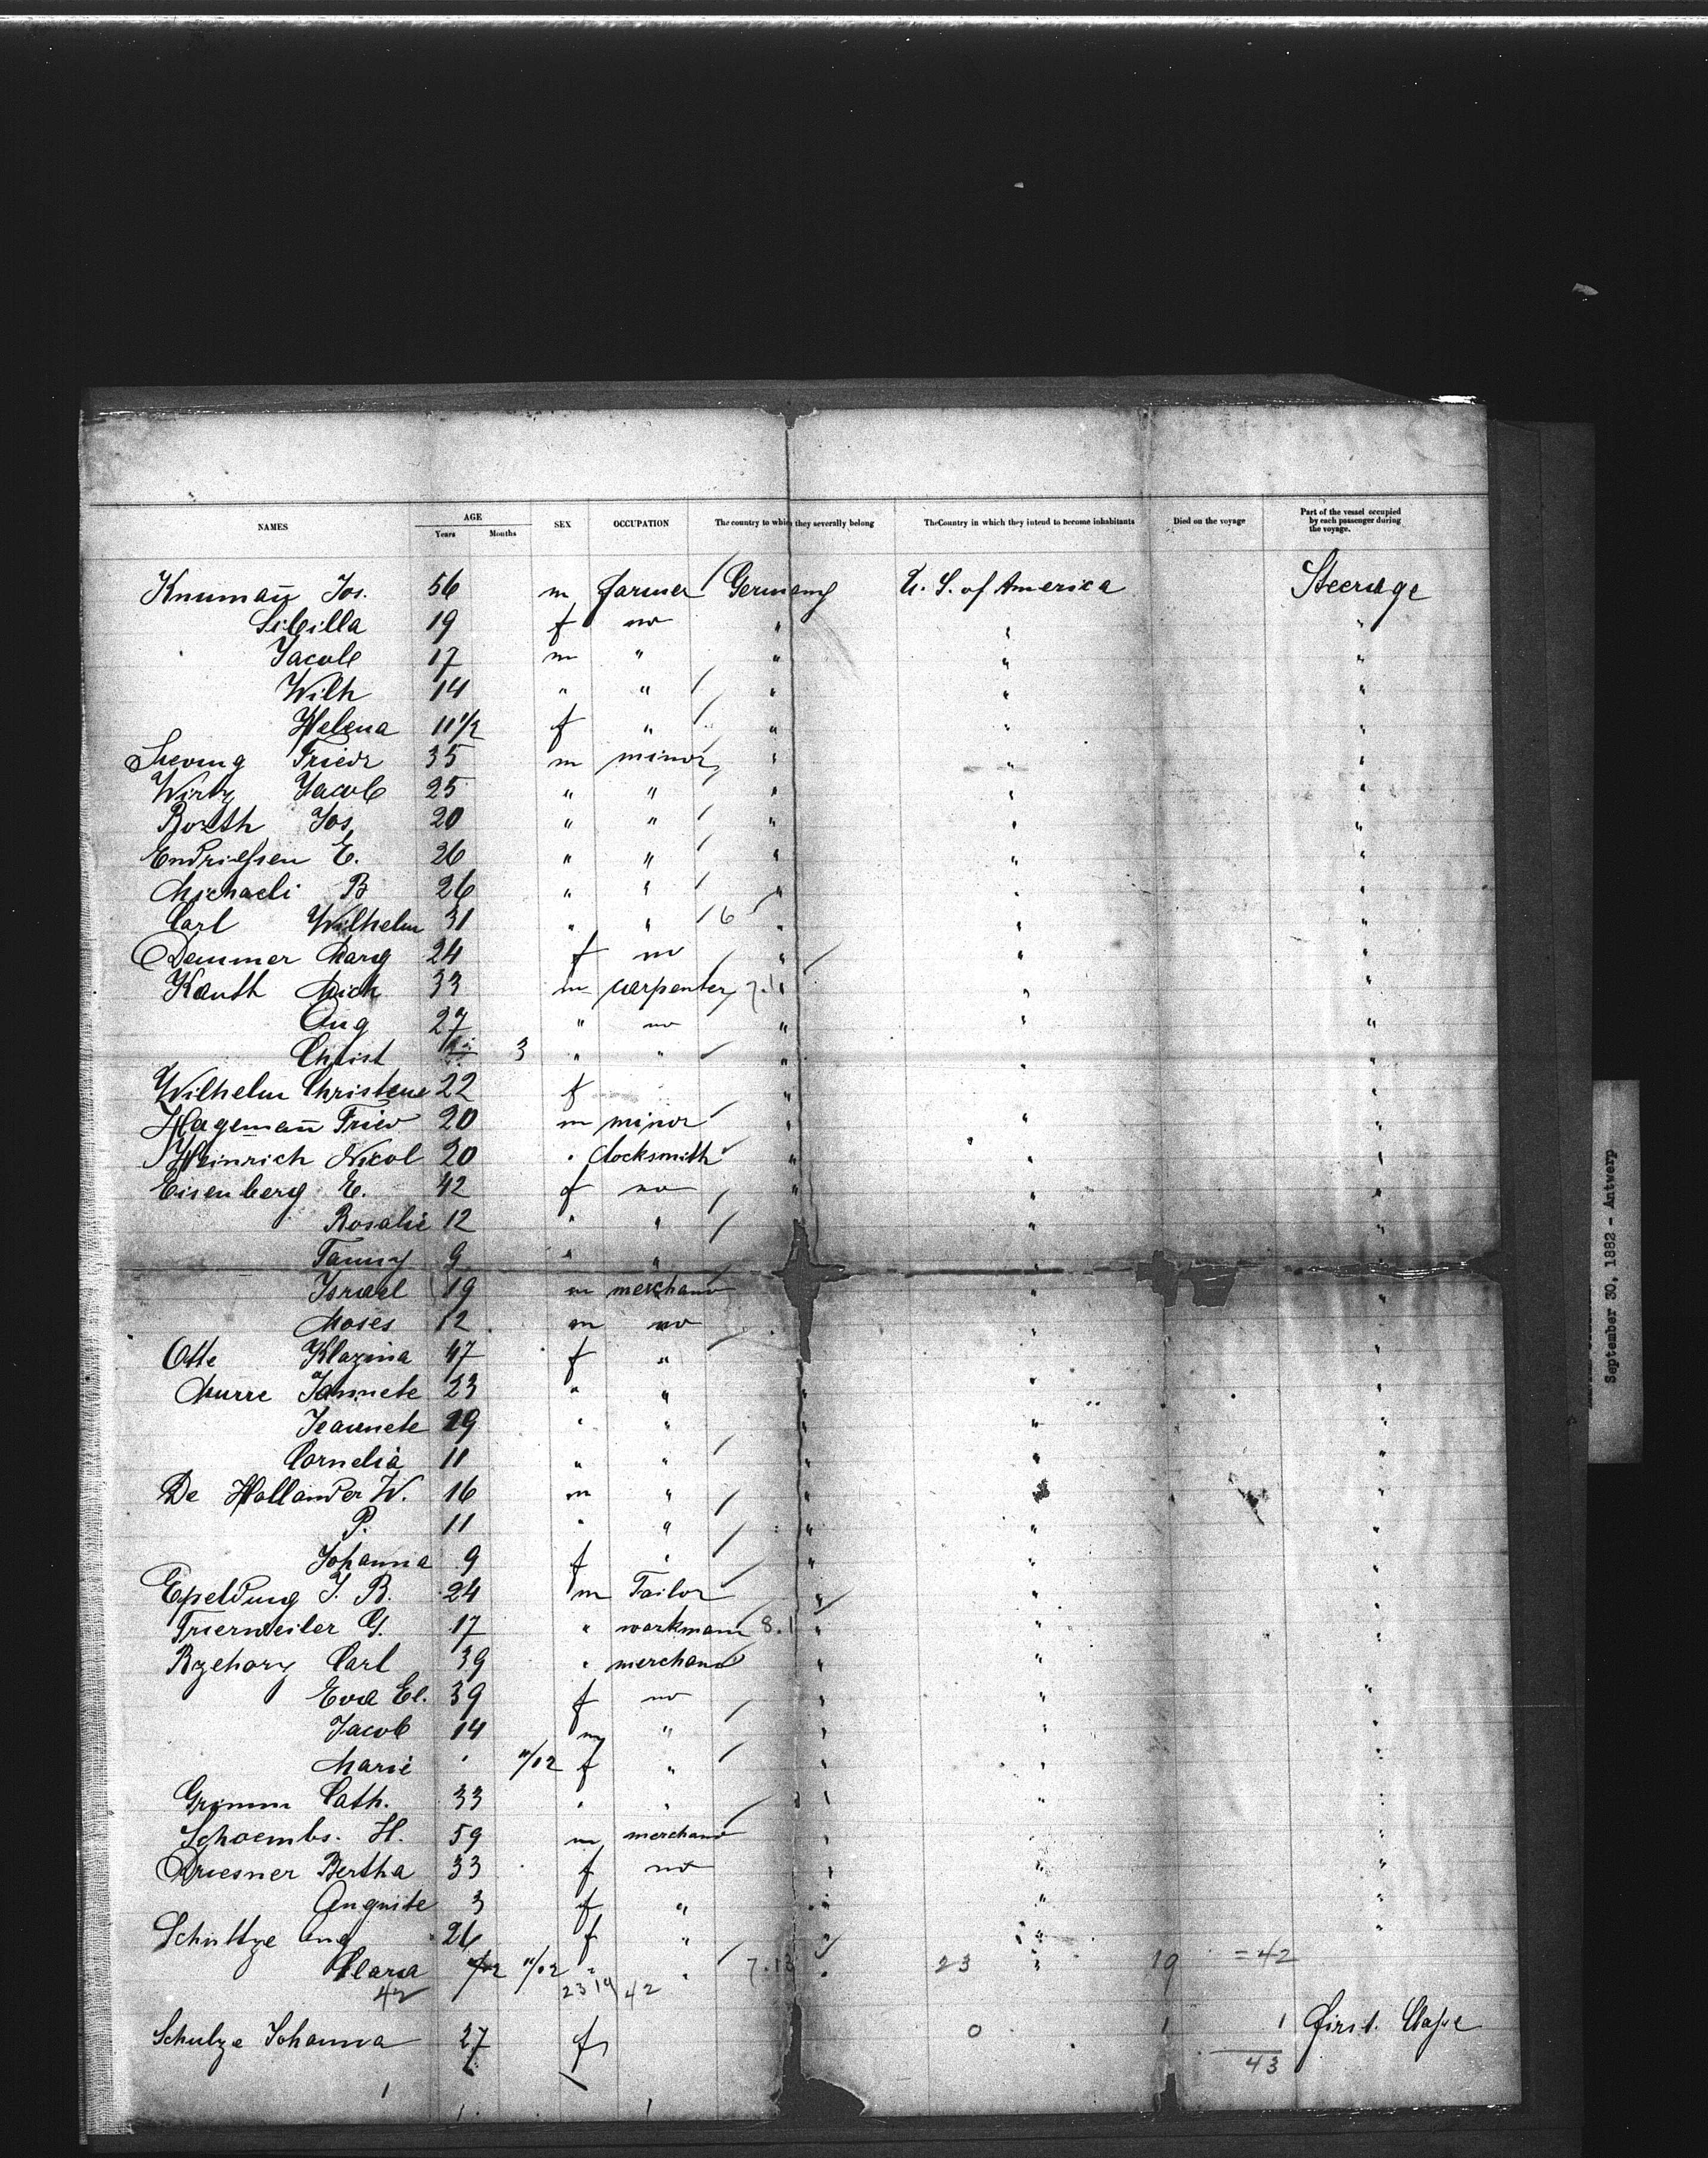 NAMES AGE Years Months SEX OCCUPATION The country to which they severally belong The Country in which they intend to become inhabitants Died on the voyage Part of the vessel occupied by each passenger during the voyage.
Knumañ Jos. 56 m farmer Germany U. S. of America Steerage
Sibilla 19 f no " " "
Jacob 17 m " " " "
Wilh 14 " " " " "
Helena 11 1/2 f " " " "
Friedr 35 m minor " " "
Wirtz Jacob 25 " " " " "
Borth Jos 20 " " " " "
Endriessen E. 26 " " " " "
Michaeli B 26 " " " " "
Carl Wilhelm 31 " " 6 " " "
Demmer Marg 24 f no " " "
Kauth Mich 33 m carpenter " " "
Aug 27 " no " " "
Christ 3 " " " " "
Wilhelm Christene 22 f " " "
Hagemañ Fried 20 m minor " " "
Heinrich Nicol 20 " Clocksmith " " "
Eisenberg E. 42 f no " " "
Rosalie 12 " " " "
Fanny 9 " " " "
Israel 19 m merchand " "
Moses 12 m no " "
Otte Klazina 47 f " " "
Murre Jannete 23 " " " " "
Jeannete 29 " " " " "
Cornelia 11 " " " " "
De Hollander W. 16 m " " " "
P. 11 " " " " "
Johanna 9 f " " " "
Epeldung J. B. 24 m Tailor " " "
Trierweiler G. 17 " workmann 8.1 " " "
Rzehory Carl 39 " merchand " " "
Eva El. 39 f no " " "
Jacob 14 m " " " "
Marie " 11/12 f " " " "
Grimm Cath. 33 " " " " "
Schoembs. H. 59 m merchand " " "
Driesner Bertha 33 f no " " "
Auguite 3 f " " " "
Schultze Aug 26 f " " " "
Clara 11/12 " " 7.13 " 23 " 19 =42
42 23 19 42
Schulze Johanna 27 f 0 1 1 First Classe
43
1 1 1
September 30, 1882 - Antwerp